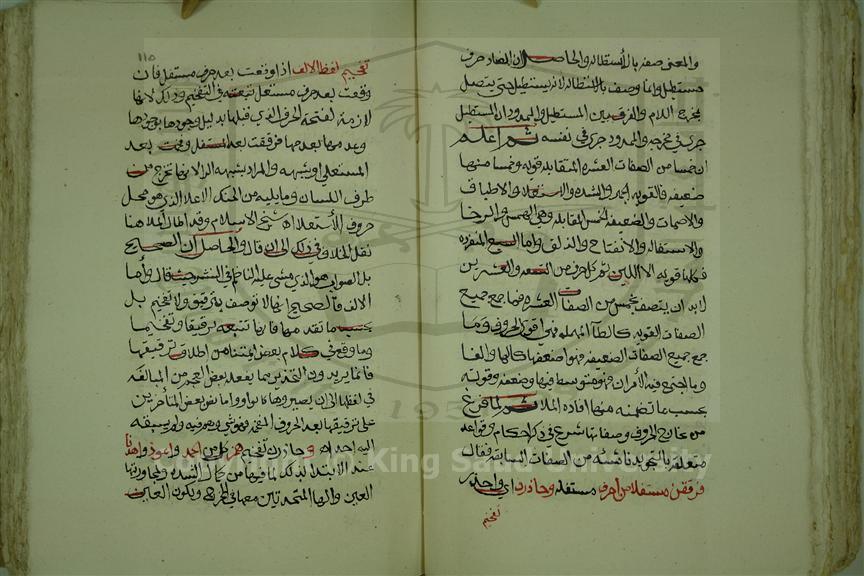 والمعنى صفه بالأستطاله والحاصل ان الضاد حرف
مستطيل وانما وصف بالاستطاله لانه يستطيل حتى يتصل
بمخرج اللام والفرق بين المستطيل والممدود ان المستطيل
جرى في مخرجه والممدود جرى في نفسه ثم اعلم
ان خمسا من الصفات العشره المتقابله قويه وخمسا منها
ضعيفه فالقويه الجهر والشده والاستعلا والاطباق
والاصمات والضعيفه الخمس المقابله وهي الهمس والرخا
والاستفاله والانفتاح والذلق واما السبع المنفرده
فكلها قويه الا اللين ثم كل حرف من التسعه والعشرين
لابد ان يتصف بخمس من الصفات العشره فما جمع جميع
الصفات القويه كالطآ المهمله فهو اقوى الحروف وما
جمع جميع الصفات الضعيفه فهو اضعفها كالها والفا
وما اجتمع فيه الأمران فهو متوسط فيها وضعفه وقوته
بحسب ما تضمنه منهما افاده الملا ثم لما فرغ
من مخارج الحروف وصفاتها شرع في ذكر احكام وقواعد
متعلقه بالتجويد ناشئه من الصفات السابقه فقال
فرققن مستفلا من احرف مستفله وحاذرن اي واحذر
تفخيم
١١٥
تفخيم لفظ الالف اذا وقعت بعد حرف مستفل فان
وقعت بعد حرف مستعل تبعته في التفخيم وذلك لانها
لازمة لفتحة الحرف الذي قبلها بدليل وجودها بوجودها
وعدمها بعدمها فرققت بعد المستفل وفخمت بعد
المستعلي او شبهه والمراد بشبهه الرا لانها تخرج من
طرف اللسان وما يليه من الحنك الاعلا الذي هو محل
حروف الأستعلا اه شيخ الاسلام وقد اطال الملا هنا
نقل الخلاف في ذلك الى ان قال والحاصل ان الصحيح
بل الصواب هو الذي مشى عليه الناظم في النشر حيث قال وأما
الالف فالصحيح انها لا توصف بترقيق ولا تفخيم بل
بحسب ما تقدمها فانها تتبعه ترقيقا وتفخيما
وما وقع في كلام بعض ائمتنا من اطلاق ترقيقها
فانما يريدون التحذير مما يفعله بعض العجم من المبالغه
في لفظها الى ان يصيروها كالواو واما نص بعض المتأخرين
على ترقيقها بعد الحروف المفخمه فهو شي وهم فيه ولم يسبقه
اليه احد اه و حاذرن تفخيم همز كل من الحمد و اعوذ و اهدنا
عند الابتدا لذلك لما فيها من كمال الشده ولمجاورتها
العين والها المتحدتين معها في المخرج ولكون العين